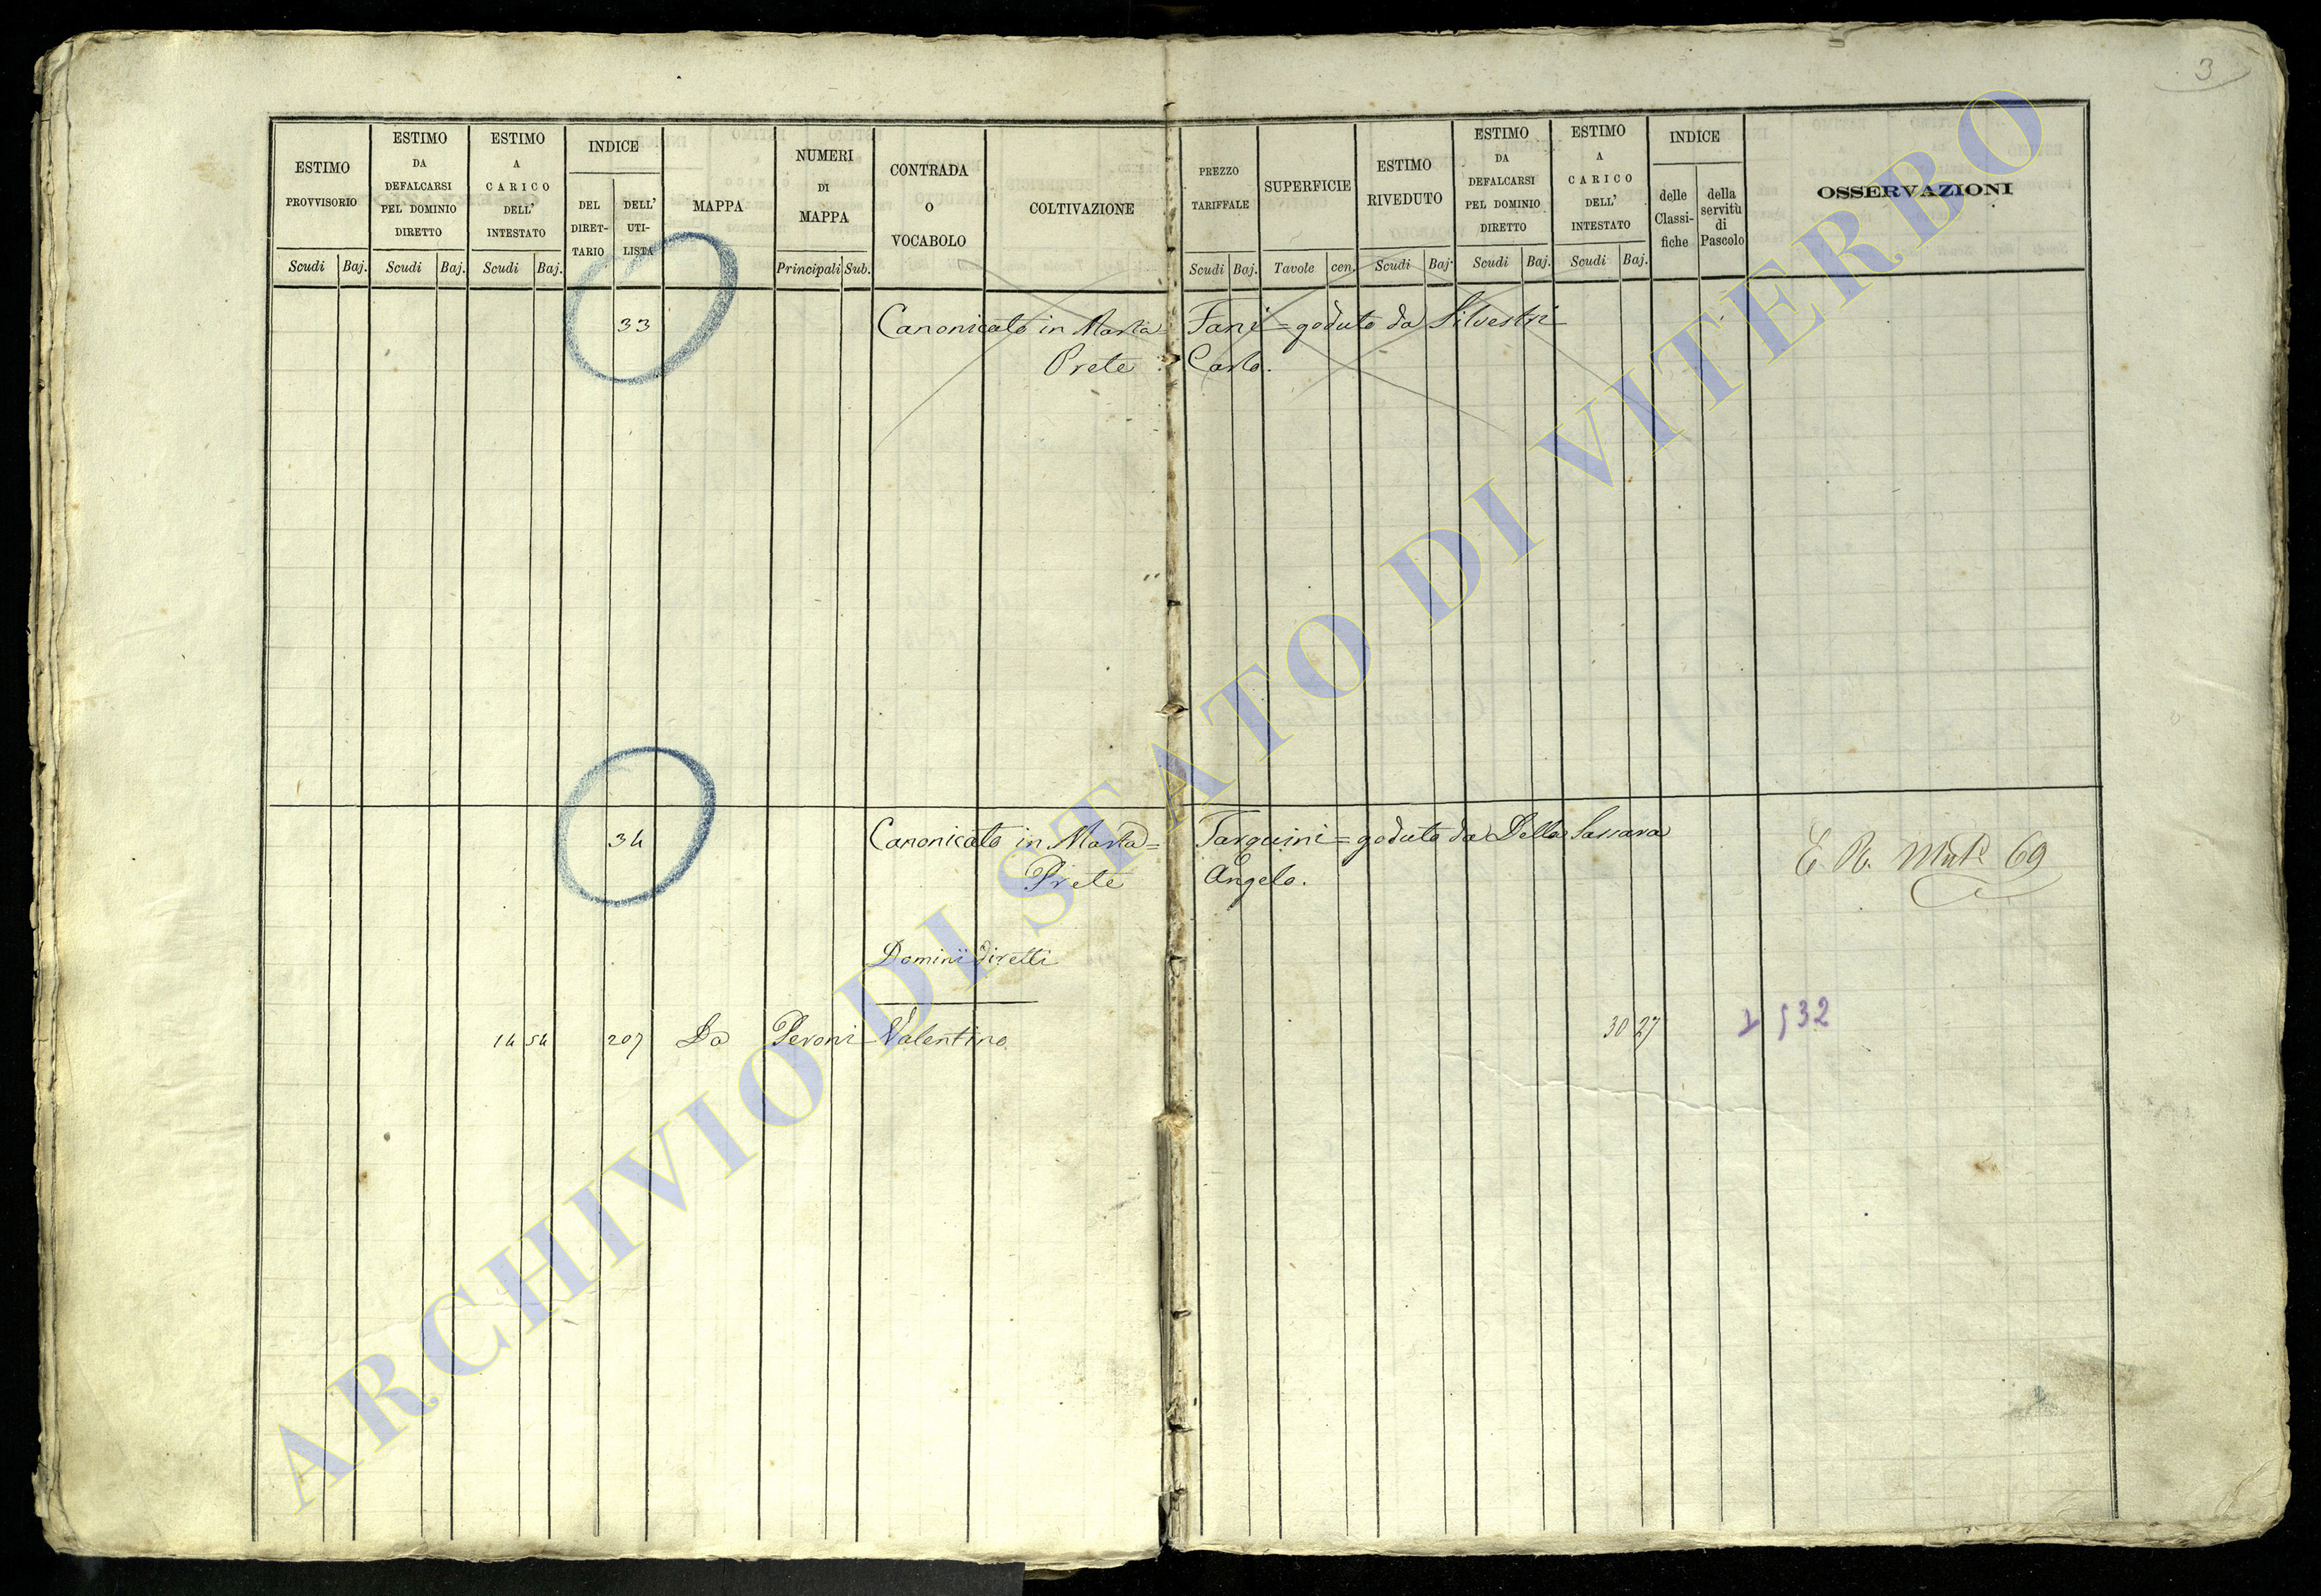 3
ESTIMO PROVVISORIO
Scudi Baj.
ESTIMO DA DEFALCARSI PEL DOMINIO DIRETTO
Scudi Baj.
ESTIMO A CARICO DELL' INTESTATO
Scudi Baj.
INDICE
DEL DIRET-TARIO
DELL' UTI-LISTA
MAPPA
NUMERI DI MAPPA
Principali Sub.
CONTRADA O VOCABOLO
COLTIVAZIONE
PREZZO TARIFFALE
Scudi Baj.
SUPERFICIE
Tavole cen.
ESTIMO RIVEDUTO
Scudi Baj.
ESTIMO DA DEFALCARSI PEL DOMINIO DIRETTO
Scudi Baj.
ESTIMO A CARICO DELL' INTESTATO
Scudi Baj.
INDICE
delle Classi-fiche
della servitù di Pascolo
OSSERVAZIONI
33 Canonicato in Marta = Fani = goduto da Silvestri
Prete Carlo.
34 Canonicato in Marta = Tarquini = goduto da Della
Prete Angelo.
69
Dominii diretti
14 54 207 Da Peroni Valentino 30 27
532
ARCHIVIO DI STATO DI VITERBO